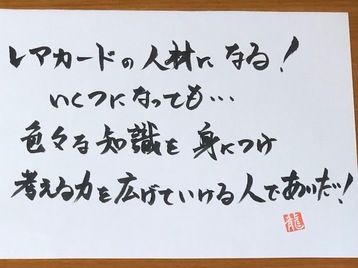 レアカードの人材になる!
いくつになっても…
色々な知識を身につけ
考える力を広げていける人でありたい!
龍